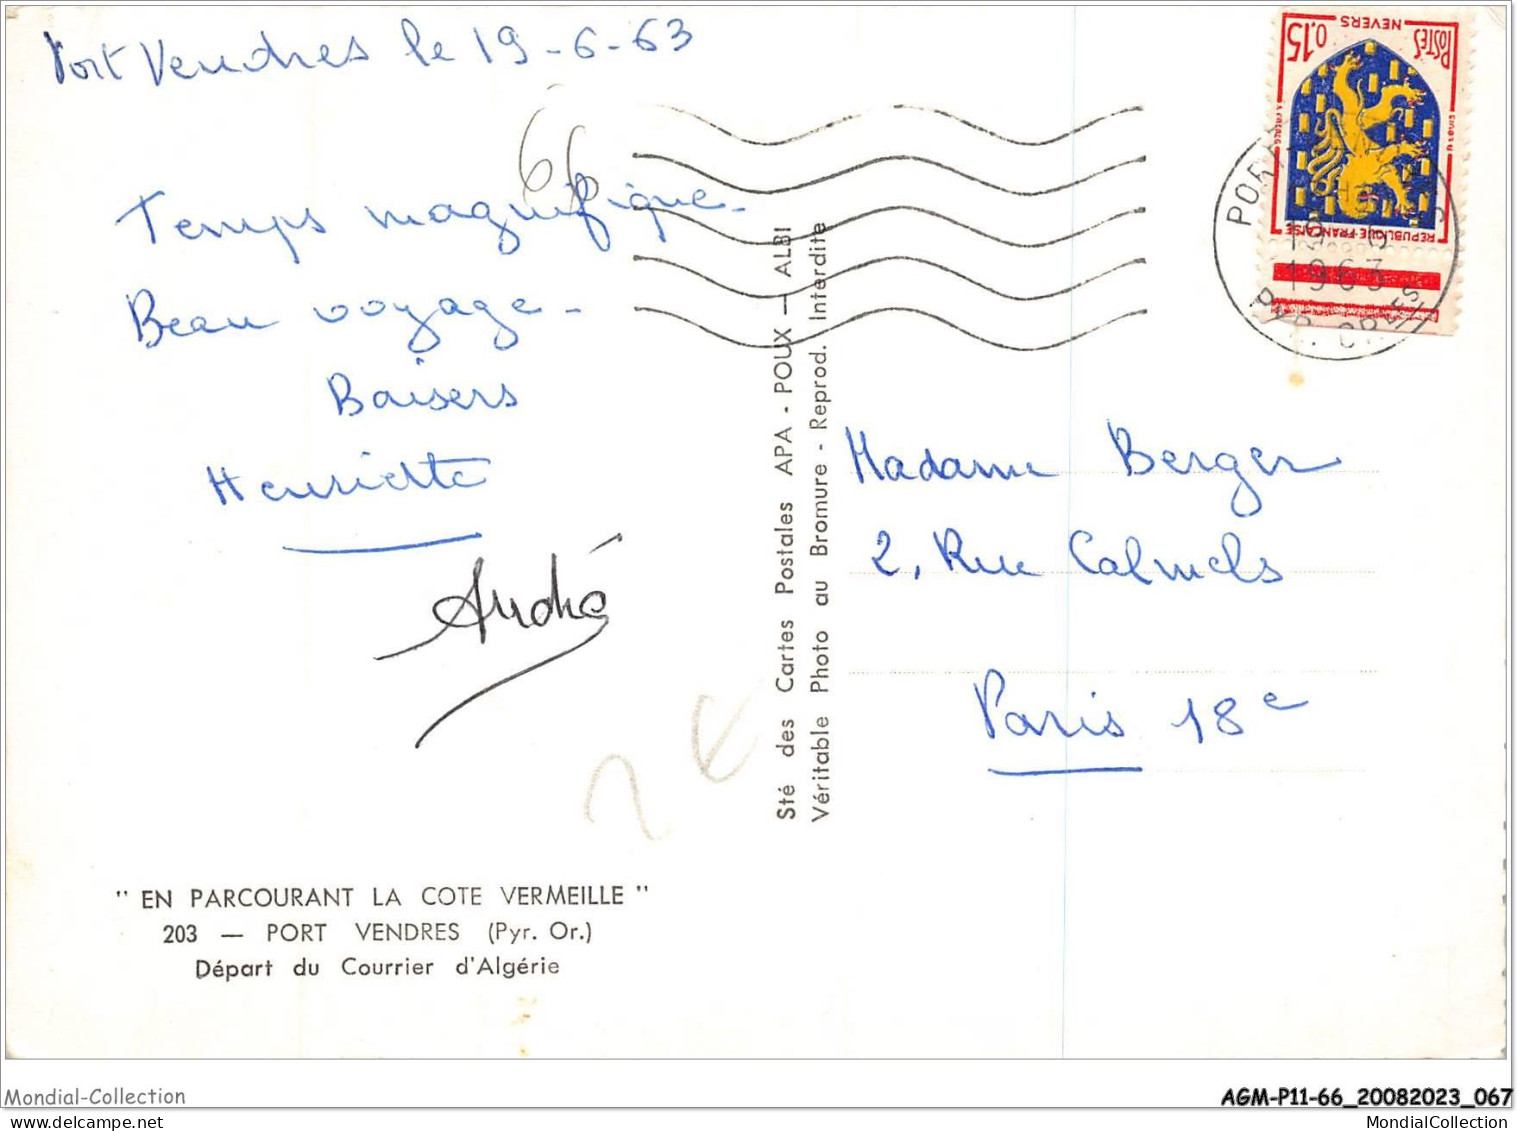 Port Vendres le 19-6-63
66
Temps magnifique.
Beau voyage.
Baisers
Henriette
André
2 €
" EN PARCOURANT LA COTE VERMEILLE "
203 — PORT VENDRES (Pyr. Or.)
Départ du Courrier d'Algérie
Sté des Cartes Postales APA - POUX — ALBI
Véritable Photo au Bromure - Reprod. Interdite
NEVERS
POSTES
0,15
REPUBLIQUE FRANÇAISE
1963
Madame Berger
2, Rue Calmels
Paris 18e
Mondial-Collection
AGM-P11-66_20082023_067
MondialCollection